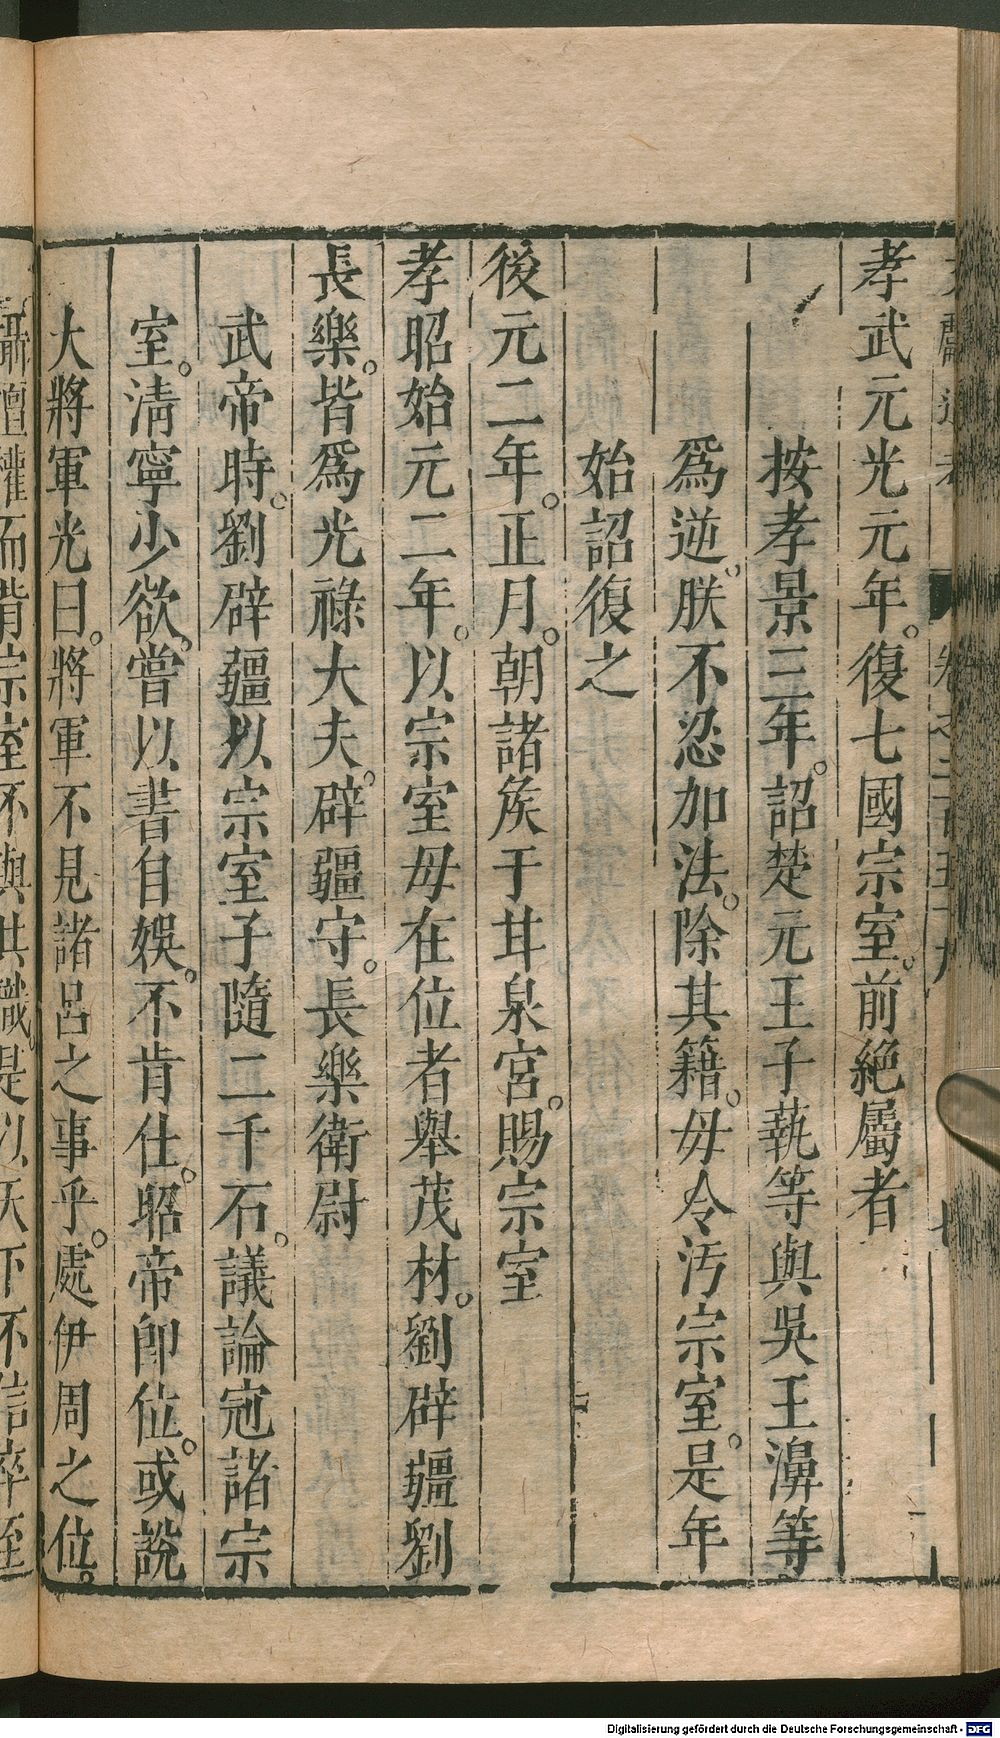 孝武元光元年。復七國宗室。前絕屬者
按孝景三年。詔楚元王子蓺等與吳王濞等
為逆。朕不忍加法。除其籍。毋令汚宗室。是年
始詔復之
後元二年。正月。朝諸矦于甘泉宮。賜宗室
孝昭始元二年。以宗室毋在位者舉茂材。劉辟彊劉
長樂。皆為光祿大夫。辟疆守。長樂衛尉
武帝時。劉辟疆以宗室子隨二千石。議論冠諸宗
室。清寧少欲。嘗以書自娛。不肯仕。昭帝即位。或說
大將軍光曰。將軍不見諸呂之事乎。處伊周之位。
攝擅權而背宗室不與共職。是以天下不信卒至
Digitalisierung gefördert durch die Deutsche Forschungsgemeinschaft - DFG